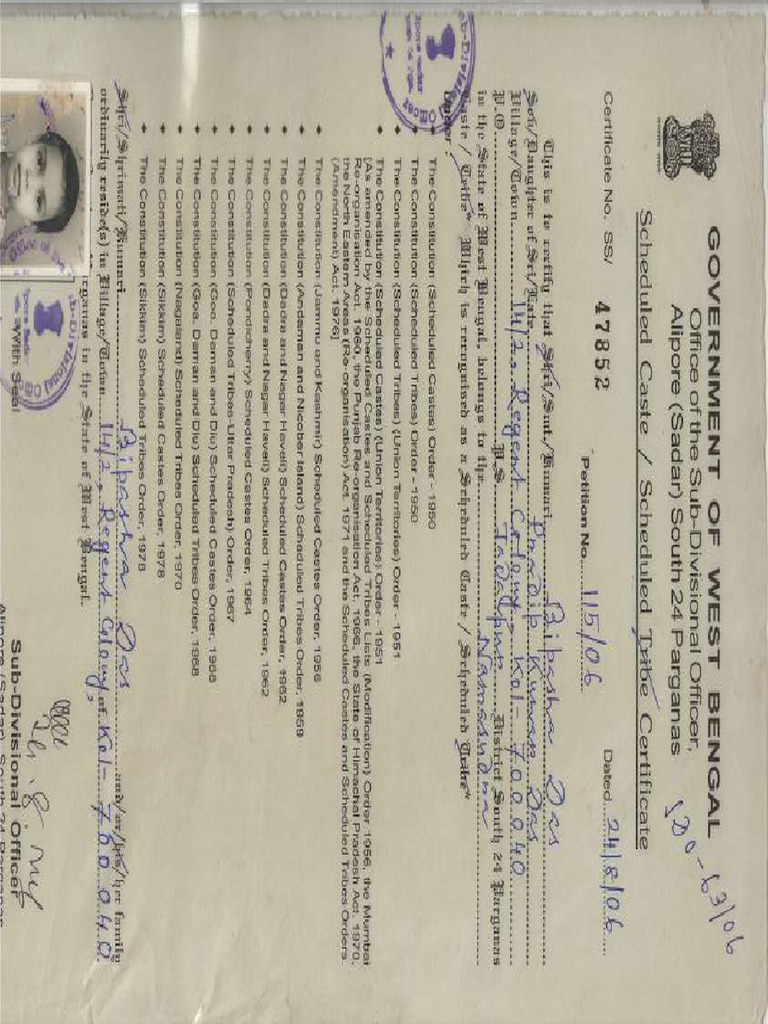 GOVERNMENT OF WEST BENGAL
Office of the Sub-Divisional Officer,
Alipore (Sadar) South 24 Parganas
SDO-63/06
Scheduled Caste / Scheduled Tribe Certificate
Certificate No. SS/ 47852 Petition No. 115/06 Dated 24/8/06
This is to certify that Shri/Smt./Kumari Bipasha Das
Son/Daughter of Sri/Late Pradip Kumar Das
Village/Town 14/2, Regent Colony, Kol- 700040
P.O. P.S. Jadavpur District South 24 Parganas
in the State of West Bengal, belongs to the Namasudra
Caste / Tribe* Which is recognised as a Scheduled Caste / Scheduled Tribe*
under :
• The Constitution (Scheduled Castes) Order - 1950
• The Constitution (Scheduled Tribes) Order - 1950
• The Constitution (Scheduled Tribes) (Union Territories) Order - 1951
• The Constitution (Scheduled Castes) (Union Territories) Order - 1951
[As amended by the Scheduled Castes and Scheduled Tribes Lists (Modification) Order 1956, the Mumbai
Re-organisation Act. 1960, the Punjab Re-organisation Act. 1966, the State of Himachal Pradesh Act. 1970.
the North Eastern Areas (Re-organisation) Act. 1971 and the Scheduled Castes and Scheduled Tribes Orders
(Amendment) Act. 1976]
• The Constitution (Jammu and Kashmir) Scheduled Castes Order, 1956
• The Constitution (Andaman and Nicober Island) Scheduled Tribes Order, 1959
• The Constitution (Dadra and Nagar Haveli) Scheduled Castes Order, 1962
• The Constitution (Dadra and Nagar Haveli) Scheduled Tribes Order, 1962
• The Constitution (Pondicherry) Scheduled Castes Order, 1964
• The Constitution (Scheduled Tribes-Uttar Pradesh) Order, 1967
• The Constitution (Goa, Daman and Diu) Scheduled Castes Order, 1968
• The Constitution (Goa, Daman and Diu) Scheduled Tribes Order, 1968
• The Constitution (Nagaland) Scheduled Tribes Order, 1970
• The Constitution (Sikkim) Scheduled Castes Order, 1978
• The Constitution (Sikkim) Scheduled Tribes Order, 1978
Shri/Shrimati/Kumari Bipasha Das and/or/his/her family
ordinarily reside(s) in Village/Town 14/2, Regent Colony, of Kol- 700 040
arganas in the State of West Bengal.
With Seal
Sub-Divisional Officer
Alipore (Sadar) South 24 Parganas